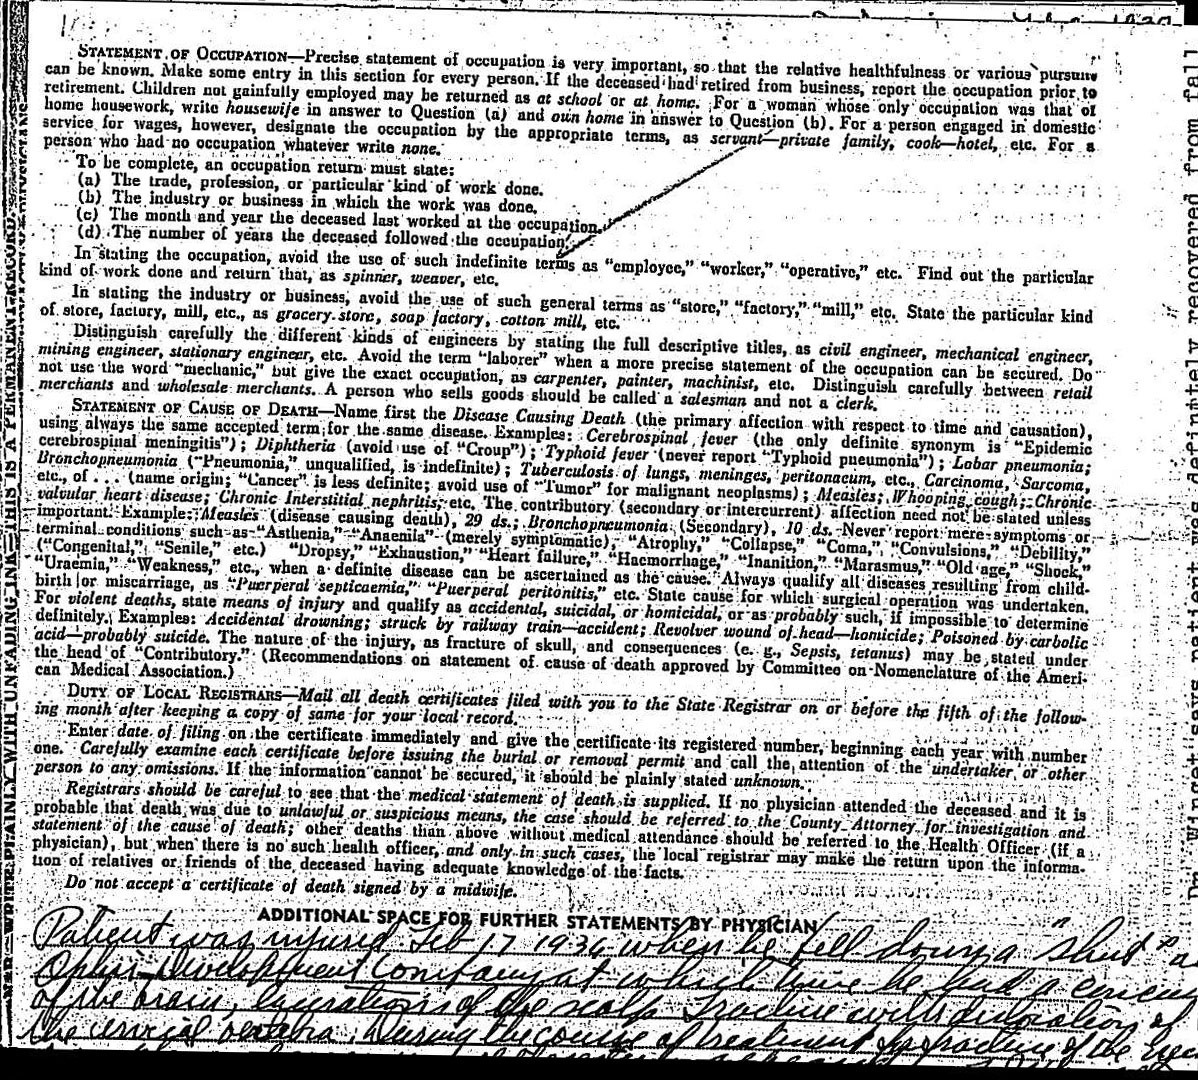 STATEMENT OF OCCUPATION—Precise statement of occupation is very important, so that the relative healthfulness or various pursuits
can be known. Make some entry in this section for every person. If the deceased had retired from business, report the occupation prior to
retirement. Children not gainfully employed may be returned as at school or at home. For a woman whose only occupation was that of
home housework, write housewife in answer to Question (a) and own home in answer to Question (b). For a person engaged in domestic
service for wages, however, designate the occupation by the appropriate terms, as servant—private family, cook—hotel, etc. For a
person who had no occupation whatever write none.
To be complete, an occupation return must state:
(a) The trade, profession, or particular kind of work done.
(b) The industry or business in which the work was done.
(c) The month and year the deceased last worked at the occupation.
(d) The number of years the deceased followed the occupation.
In stating the occupation, avoid the use of such indefinite terms as "employee," "worker," "operative," etc. Find out the particular
kind of work done and return that, as spinner, weaver, etc.
In stating the industry or business, avoid the use of such general terms as "store," "factory," "mill," etc. State the particular kind
of store, factory, mill, etc., as grocery store, soap factory, cotton mill, etc.
Distinguish carefully the different kinds of engineers by stating the full descriptive titles, as civil engineer, mechanical engineer,
mining engineer, stationary engineer, etc. Avoid the term "laborer" when a more precise statement of the occupation can be secured. Do
not use the word "mechanic," but give the exact occupation, as carpenter, painter, machinist, etc. Distinguish carefully between retail
merchants and wholesale merchants. A person who sells goods should be called a salesman and not a clerk.
STATEMENT OF CAUSE OF DEATH—Name first the Disease Causing Death (the primary affection with respect to time and causation),
using always the same accepted term for the same disease. Examples: Cerebrospinal fever (the only definite synonym is "Epidemic
cerebrospinal meningitis"); Diphtheria (avoid use of "Croup"); Typhoid fever (never report "Typhoid pneumonia"); Lobar pneumonia;
Bronchopneumonia ("Pneumonia," unqualified, is indefinite); Tuberculosis of lungs, meninges, peritonaeum, etc., Carcinoma, Sarcoma,
etc., of . . . (name origin; "Cancer" is less definite; avoid use of "Tumor" for malignant neoplasms); Measles; Whooping cough; Chronic
valvular heart disease; Chronic Interstitial nephritis, etc. The contributory (secondary or intercurrent) affection need not be stated unless
important. Example: Measles (disease causing death), 29 ds.; Bronchopneumonia (Secondary), 10 ds. Never report mere symptoms or
terminal conditions such as "Asthenia," "Anaemia" (merely symptomatic), "Atrophy," "Collapse," "Coma," "Convulsions," "Debility,"
("Congenital," "Senile," etc.) "Dropsy," "Exhaustion," "Heart failure," "Haemorrhage," "Inanition," "Marasmus," "Old age," "Shock,"
"Uraemia," "Weakness," etc., when a definite disease can be ascertained as the cause. Always qualify all diseases resulting from child-
birth or miscarriage, as "Puerperal septicaemia," "Puerperal peritonitis," etc. State cause for which surgical operation was undertaken.
For violent deaths, state means of injury and qualify as accidental, suicidal, or homicidal, or as probably such, if impossible to determine
definitely. Examples: Accidental drowning; struck by railway train—accident; Revolver wound of head—homicide; Poisoned by carbolic
acid—probably suicide. The nature of the injury, as fracture of skull, and consequences (e. g., Sepsis, tetanus) may be stated under
the head of "Contributory." (Recommendations on statement of cause of death approved by Committee on Nomenclature of the Ameri-
can Medical Association.)
DUTY OF LOCAL REGISTRARS—Mail all death certificates filed with you to the State Registrar on or before the fifth of the follow-
ing month after keeping a copy of same for your local record.
Enter date of filing on the certificate immediately and give the certificate its registered number, beginning each year with number
one. Carefully examine each certificate before issuing the burial or removal permit and call the attention of the undertaker or other
person to any omissions. If the information cannot be secured, it should be plainly stated unknown.
Registrars should be careful to see that the medical statement of death is supplied. If no physician attended the deceased and it is
probable that death was due to unlawful or suspicious means, the case should be referred to the County Attorney for investigation and
statement of the cause of death; other deaths than above without medical attendance should be referred to the Health Officer (if a
physician), but when there is no such health officer, and only in such cases, the local registrar may make the return upon the informa-
tion of relatives or friends of the deceased having adequate knowledge of the facts.
Do not accept a certificate of death signed by a midwife.
ADDITIONAL SPACE FOR FURTHER STATEMENTS BY PHYSICIAN
Patient was injured Feb 17 1934 when he fell down a
Development Company at which time he had a
of the brain, lacerations of the scalp fracture with dislocation of
the cervical vertebra. During the course of treatment for fracture of the
WRITE PLAINLY WITH UNFADING INK—THIS IS A PERMANENT RECORD
says patient was definitely recovered from fall